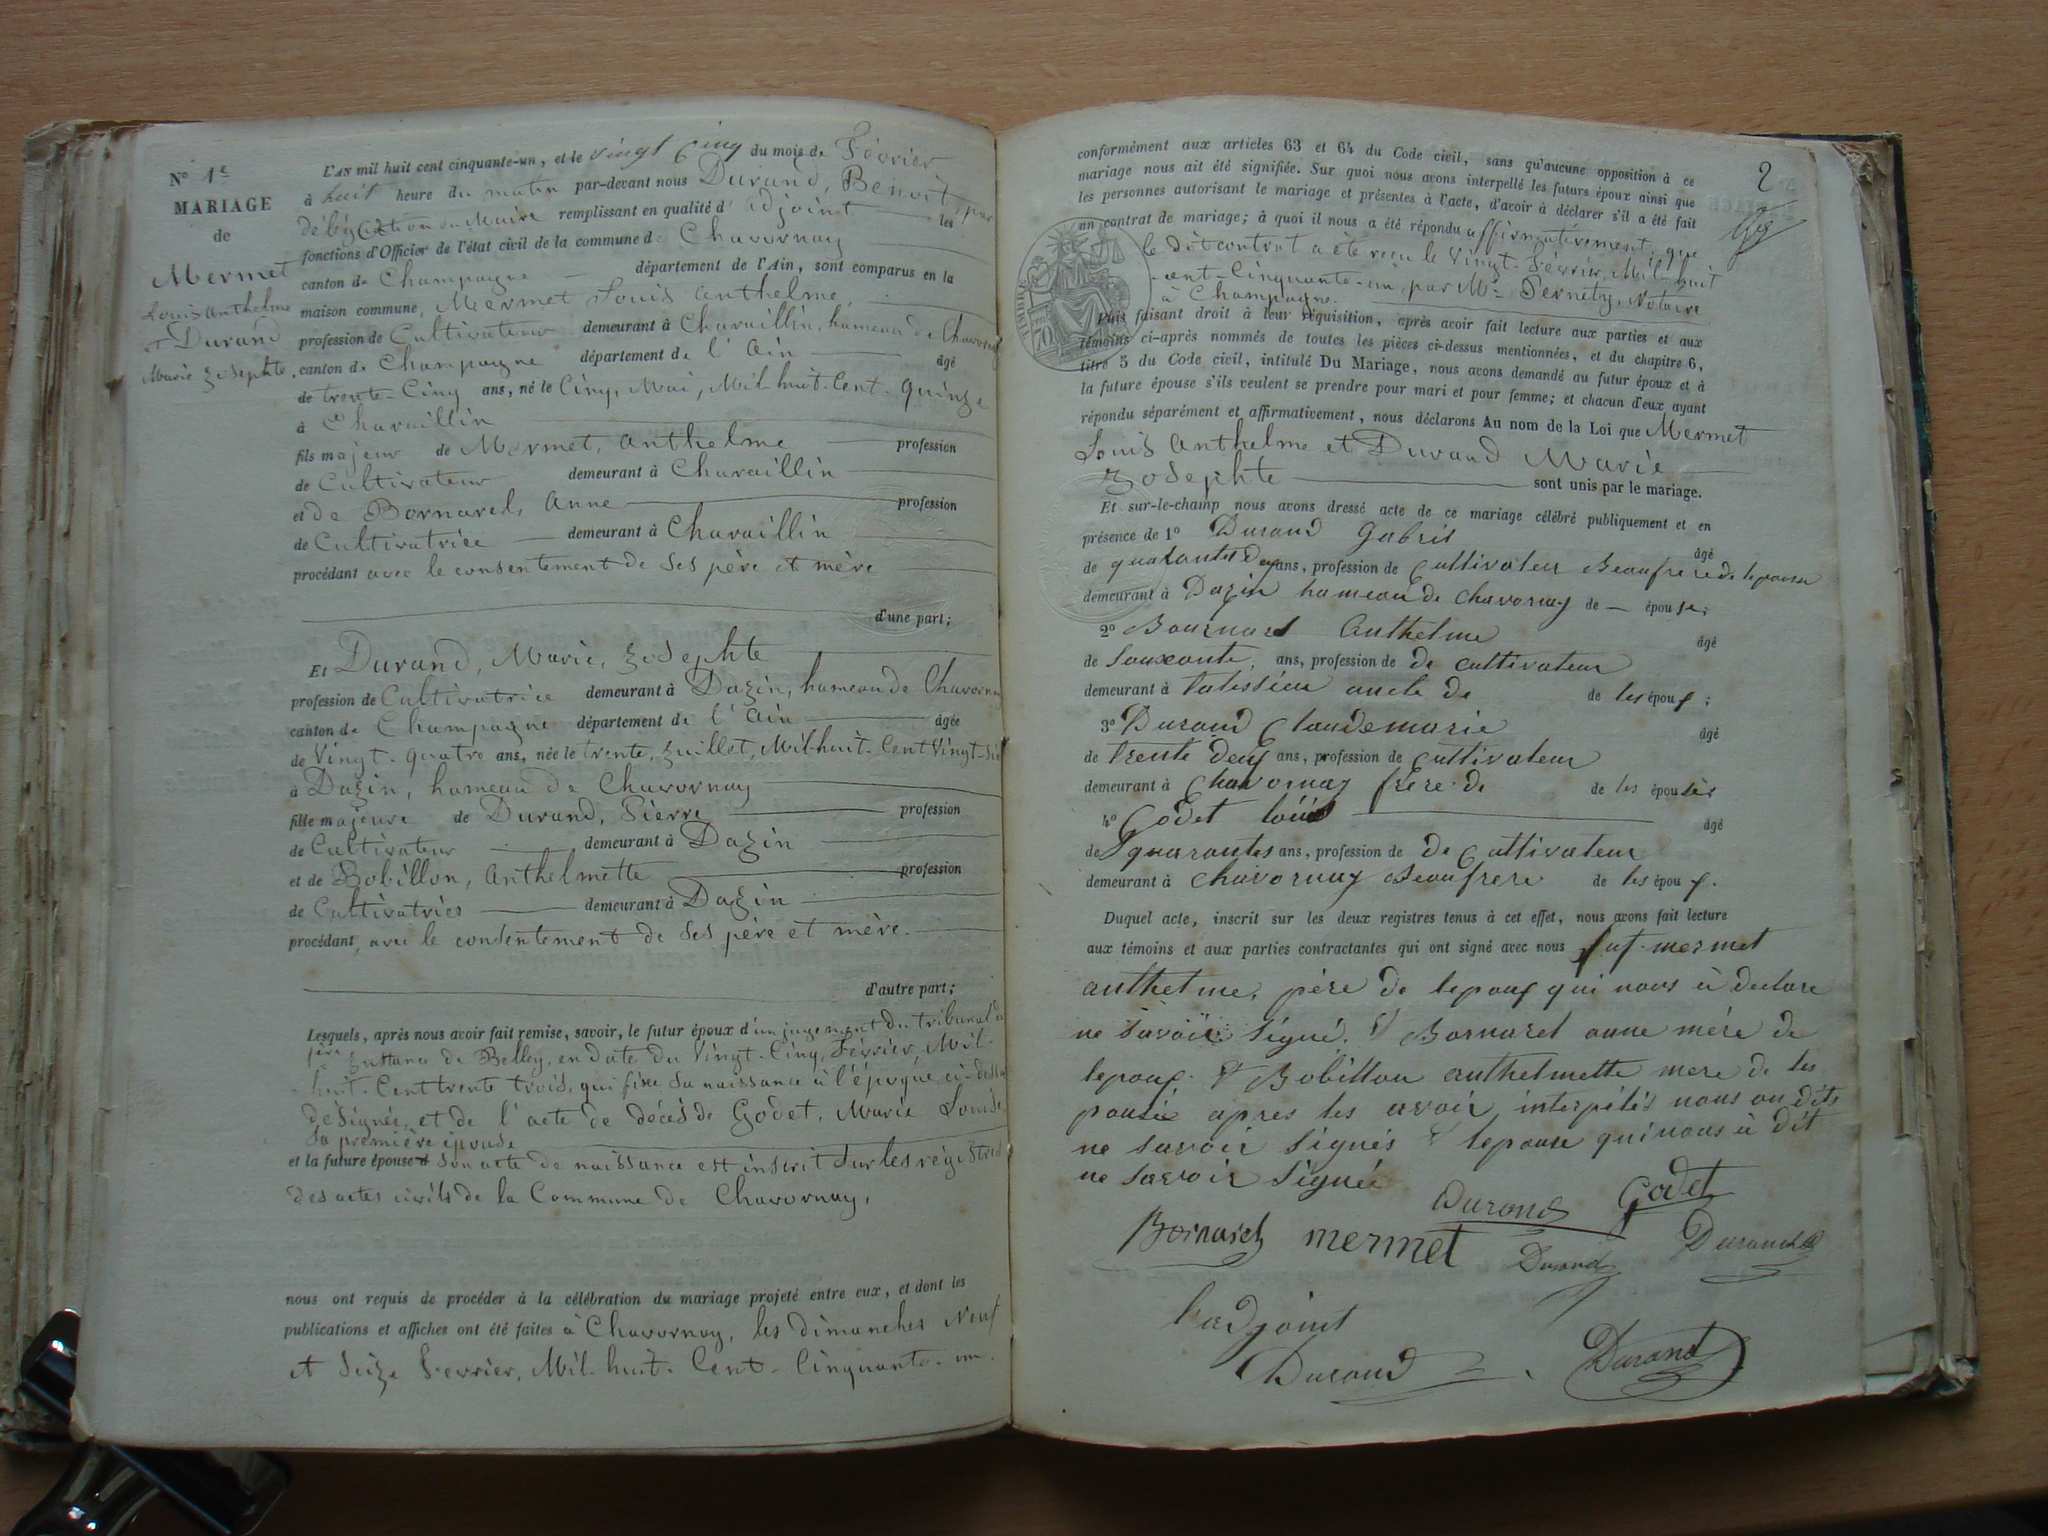 N° 1er
MARIAGE
de
Mermet
Louis Anthelme
et Durand
Marie Zosephte.
L'AN mil huit cent cinquante-un, et le vingt Cinq du mois de Février
à huit heure du matin par-devant nous Durand, Benoit, par
délégation du Maire remplissant en qualité d' adjoint les
fonctions d'Officier de l'état civil de la commune de Chavornay
canton de Champagne département de l'Ain, sont comparus en la
maison commune, Mermet Louis Anthelme,
profession de Cultivateur demeurant à Charaillin, hameau de Chavornay
canton de Champagne département de l'Ain âgé
de trente-Cinq ans, né le Cinq, Mai, Mil huit-Cent-quinze
à Charaillin
fils majeur de Mermet, Anthelme profession
de Cultivateur demeurant à Charaillin
et de Bornard, Anne profession
de Cultivatrice demeurant à Charaillin
procédant avec le consentement de ses père et mère
d'une part;
Et Durand, Marie, Zosephte
profession de Cultivatrice demeurant à Dazin, hameau de Chavornay
canton de Champagne département de l'Ain âgée
de Vingt-quatre ans, née le trente, Juillet, Mil-huit-Cent Vingt-six
à Dazin, hameau de Chavornay
fille majeure de Durand, Pierre profession
de Cultivateur demeurant à Dazin
et de Bobillon, Anthelmette profession
de Cultivatrice demeurant à Dazin
procédant, avec le consentement de ses père et mère.
d'autre part;
Lesquels, après nous avoir fait remise, savoir, le futur époux d'un jugement du tribunal de
1ère Instance de Belley, en date du Vingt-Cinq, Février, Mil-
huit-Cent trente trois, qui fixe sa naissance à l'époque ci-dessus
désignée, et de l'acte de décès de Godet, Marie Louise
sa première épouse
et la future épouse son acte de naissance est inscrit sur les régistres
des actes civils de la Commune de Chavornay,
nous ont requis de procéder à la célébration du mariage projeté entre eux, et dont les
publications et affiches ont été faites à Chavornay, les dimanches Neuf
et Seize Fevrier, Mil-huit-Cent-Cinquante-un.
2
conformément aux articles 63 et 64 du Code civil, sans qu'aucune opposition à ce
mariage nous ait été signifiée. Sur quoi nous avons interpellé les futurs époux ainsi que
les personnes autorisant le mariage et présentes à l'acte, d'avoir à déclarer s'il a été fait
un contrat de mariage; à quoi il nous a été répondu affirmativement, que
le dit contrat a été reçu le Vingt-Février, Mil-huit
-cent-Cinquante-un, par Me Pernety, Notaire
à Champagne.
TIMBRE
Puis faisant droit à leur réquisition, après avoir fait lecture aux parties et aux
témoins ci-après nommés de toutes les pièces ci-dessus mentionnées, et du chapitre 6,
titre 5 du Code civil, intitulé Du Mariage, nous avons demandé au futur époux et à
la future épouse s'ils veulent se prendre pour mari et pour femme; et chacun d'eux ayant
répondu séparément et affirmativement, nous déclarons Au nom de la Loi que Mermet
Louis Anthelme et Durand Marie
Zosephte sont unis par le mariage.
Et sur-le-champ nous avons dressé acte de ce mariage célébré publiquement et en
présence de 1° Durand Gabril âgé
de quarante deux ans, profession de Cultivateur Beaufrere de lepouse
demeurant à Dazin hameau de Chavornay de — épouse;
2° Bournard Anthelme âgé
de souxante, ans, profession de de cultivateur
demeurant à talissieu oncle de de les époux;
3° Durand Claudemarie âgé
de trente deux ans, profession de Cultivateur
demeurant à Chavornay frère de de les épousée
4° Godet loüis âgé
de quarantes ans, profession de de Cultivateur
demeurant à Chavornay Beaufrere de les époux.
Duquel acte, inscrit sur les deux registres tenus à cet effet, nous avons fait lecture
aux témoins et aux parties contractantes qui ont signé avec nous sauf mermet
anthelme, père de lepoux qui nous à declare
ne savoir signé. et Bornard anne mère de
lepoux. et Bobillon anthelmette mere de les
pousée apres les avoir interpélés nous on dits
ne savoir signés et lepouse qui nous à dit
ne savoir signée
Durand Godet
Bornard mermet Durand Durand
l'adjoint
Durand Durand